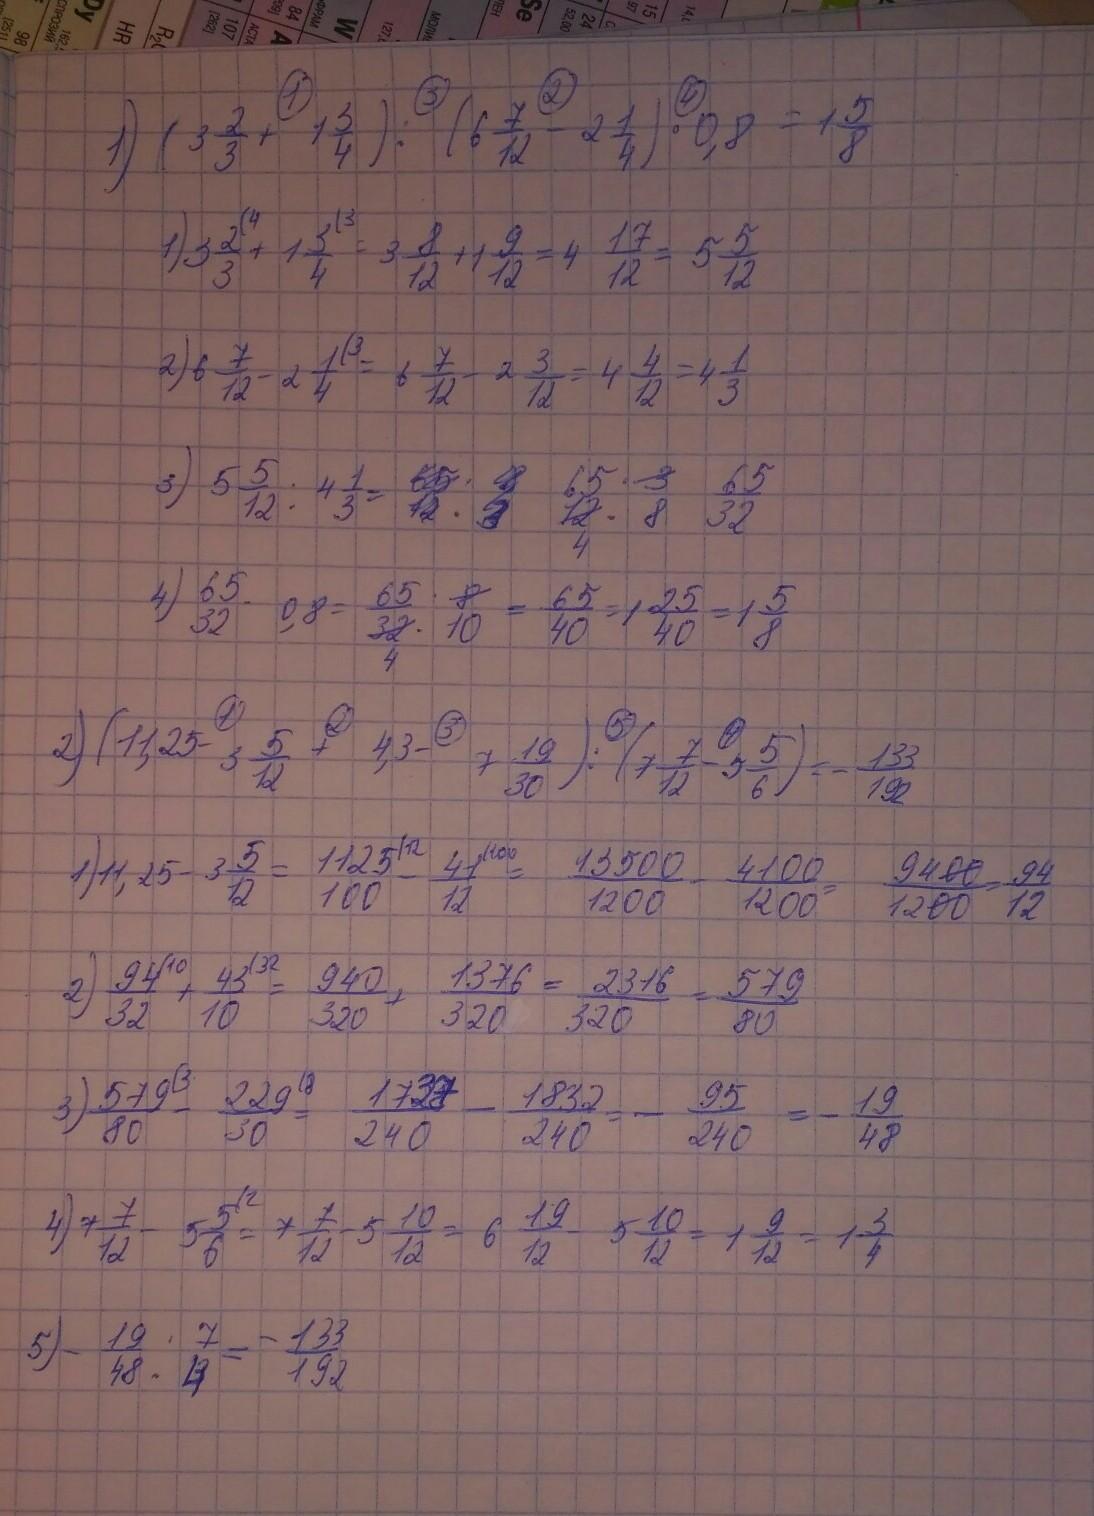 98 162, Dy HR 107 84 A W 127, Se 52,00 24 15 97
1) (3 2/3 + 1 3/4) : (6 7/12 - 2 1/4) · 0,8 = 1 5/8
1) 3 2/3 (4 + 1 3/4 (3 = 3 8/12 + 1 9/12 = 4 17/12 = 5 5/12
2) 6 7/12 - 2 1/4 (3 = 6 7/12 - 2 3/12 = 4 4/12 = 4 1/3
3) 5 5/12 : 4 1/3 = 65 · 3/12 · 8 65/32
4) 65/32 · 0,8 = 65 · 8/32 · 10 = 65/40 = 1 25/40 = 1 5/8
2) (11,25 - 3 5/12 + 4,3 - 7 19/30) : (7 7/12 - 5 5/6) = - 133/192
1) 11,25 - 3 5/12 = 1125/100 (12 - 41/12 (100 = 13500/1200 - 4100/1200 = 9400/1200 = 94/12
2) 94/32 (10 + 43/10 (32 = 940/320 + 1376/320 = 2316/320 = 579/80
3) 579/80 (3 - 229/30 (8 = 1737/240 - 1832/240 = - 95/240 = - 19/48
4) 7 7/12 - 5 5/6 (2 = 7 7/12 - 5 10/12 = 6 19/12 - 5 10/12 = 1 9/12 = 1 3/4
5) - 19 · 7/48 · 4 = - 133/192